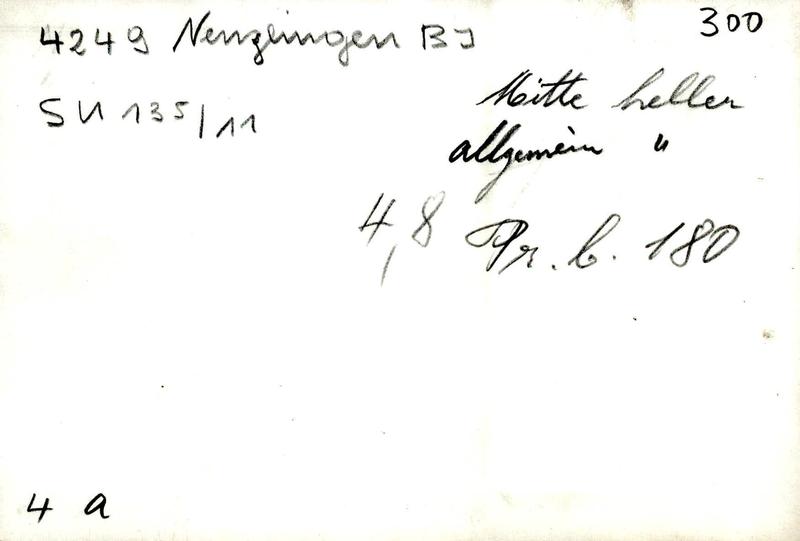 300
4249 Nenzlingen BJ
SU 135/11
Mitte heller
allgemein "
4,8 Pr. b. 180
4 a